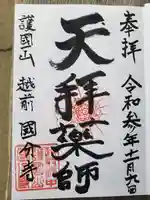 奉拝
令和参年十一月九日
天拝薬師
護國山 越前 國分寺